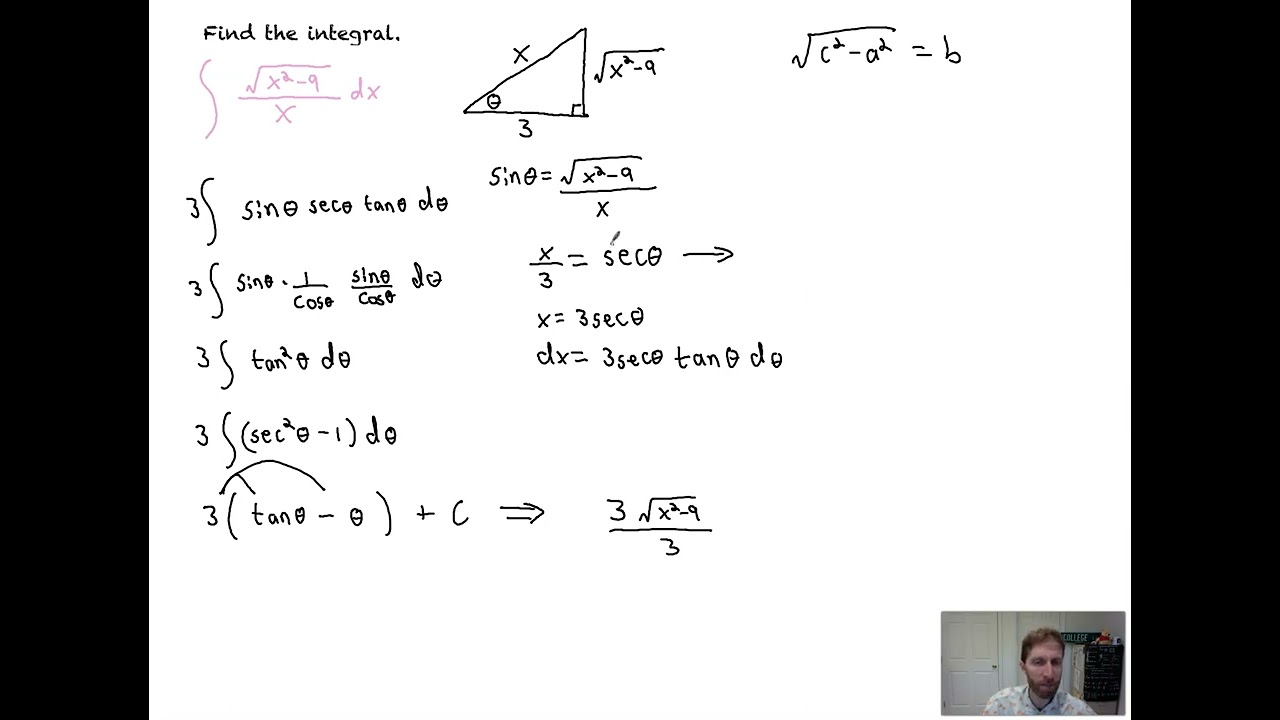 Find the integral.
∫ √(x²-9)/x dx
x
√(x²-9)
θ
3
√(c²-a²) = b
3∫ sinθ secθ tanθ dθ
sinθ = √(x²-9)/x
3∫ sinθ · 1/cosθ sinθ/cosθ dθ
x/3 = secθ →
x = 3secθ
3∫ tan²θ dθ
dx = 3secθ tanθ dθ
3∫(sec²θ-1)dθ
3(tanθ - θ) + C ⇒ 3√(x²-9)/3
COLLEGE